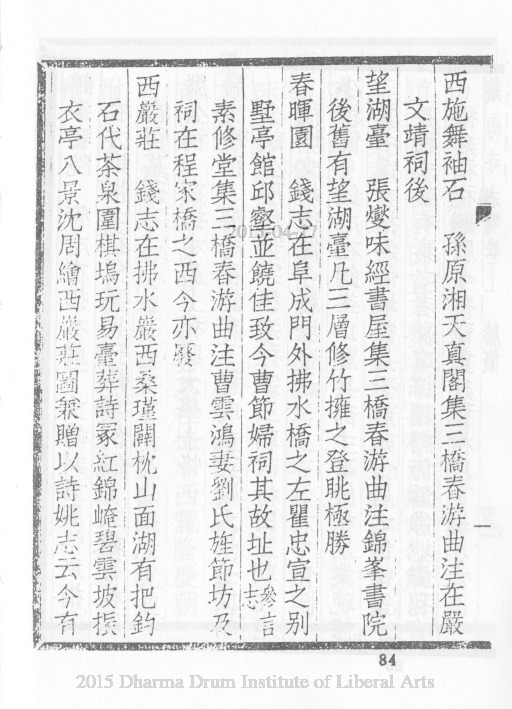 西施舞袖石　孫原湘天真閣集三橋春游曲注在嚴
文靖祠後
望湖臺　張燮味經書屋集三橋春游曲注錦峯書院
後舊有望湖臺凡三層修竹擁之登眺極勝
春暉園　錢志在阜成門外拂水橋之左瞿忠宣之别
墅亭館邱壑並饒佳致今曹節婦祠其故址也參言志
素修堂集三橋春游曲注曹雲鴻妻劉氏旌節坊及
祠在程家橋之西今亦廢
西巖莊　錢志在拂水巖西桑瑾闢枕山面湖有把釣
石代茶泉圍棋塢玩易臺葬詩冢紅錦崦碧雲坡振
衣亭八景沈周繪西巖莊圖兼贈以詩姚志云今有
84
2015 Dharma Drum Institute of Liberal Arts